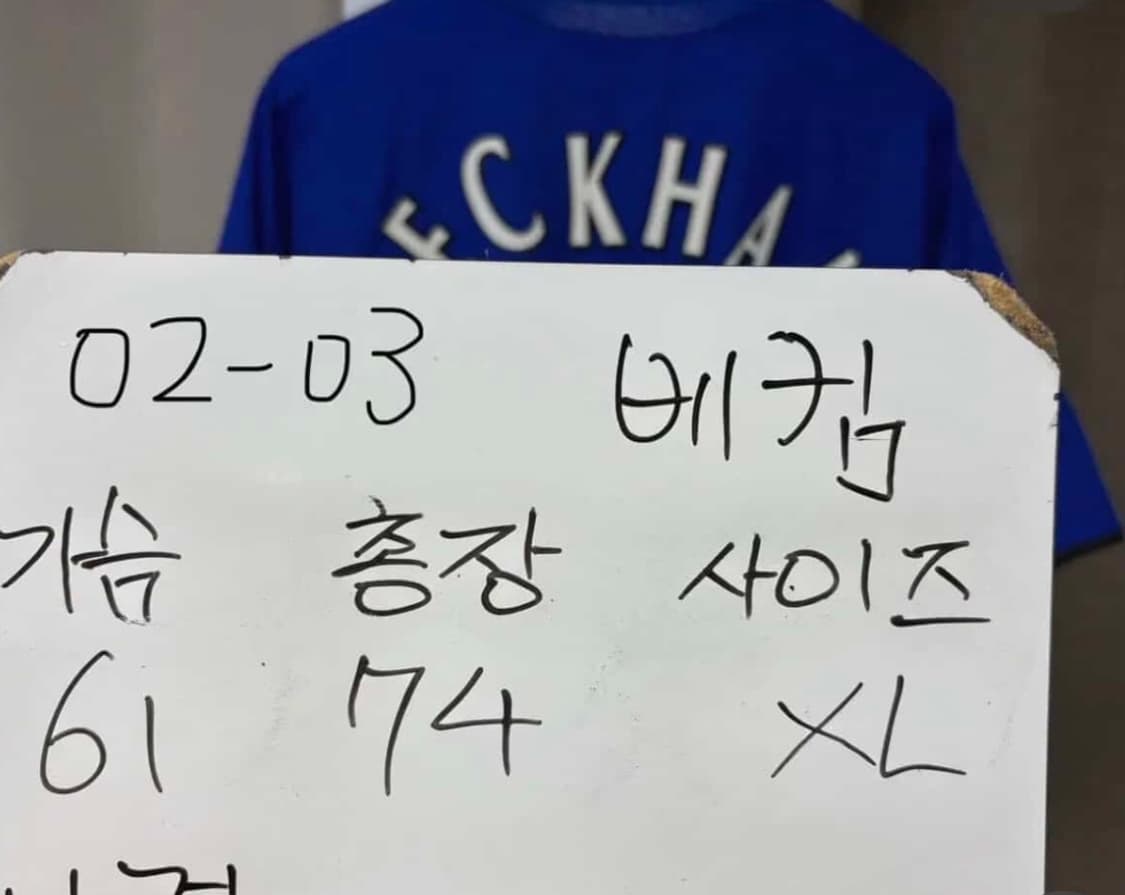 ECKHA
02-03 베컴
가슴 총장 사이즈
61 74 XL